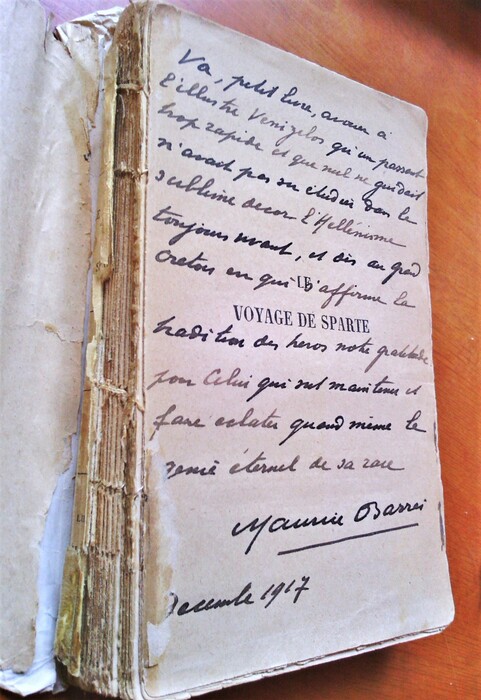 Va, petit livre, avouer à
l'illustre Venizelos qu'un passant
trop rapide et que nul ne guidait
n'avait pas su étudier dans le
sublime decor l'Hellénisme
toujours vivant, et dis au grand
cretois en qui s'affirme la
LE
VOYAGE DE SPARTE
tradition des heros notre gratitude
pour Celui qui sut maintenir et
faire eclater quand même le
genie éternel de sa race
Maurice Barrès
Decembre 1917